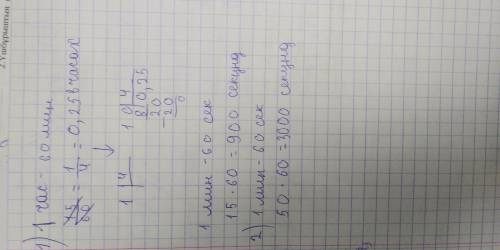 1) 1 час - 60 мин
15/60 = 1/4 = 0,25 в часах
1 | 4
1 0 | 4
8 | 0,25
20
- 20
0
1 мин - 60 сек
15 · 60 = 900 секунд
2) 1 мин - 60 сек
50 · 60 = 3000 секунд